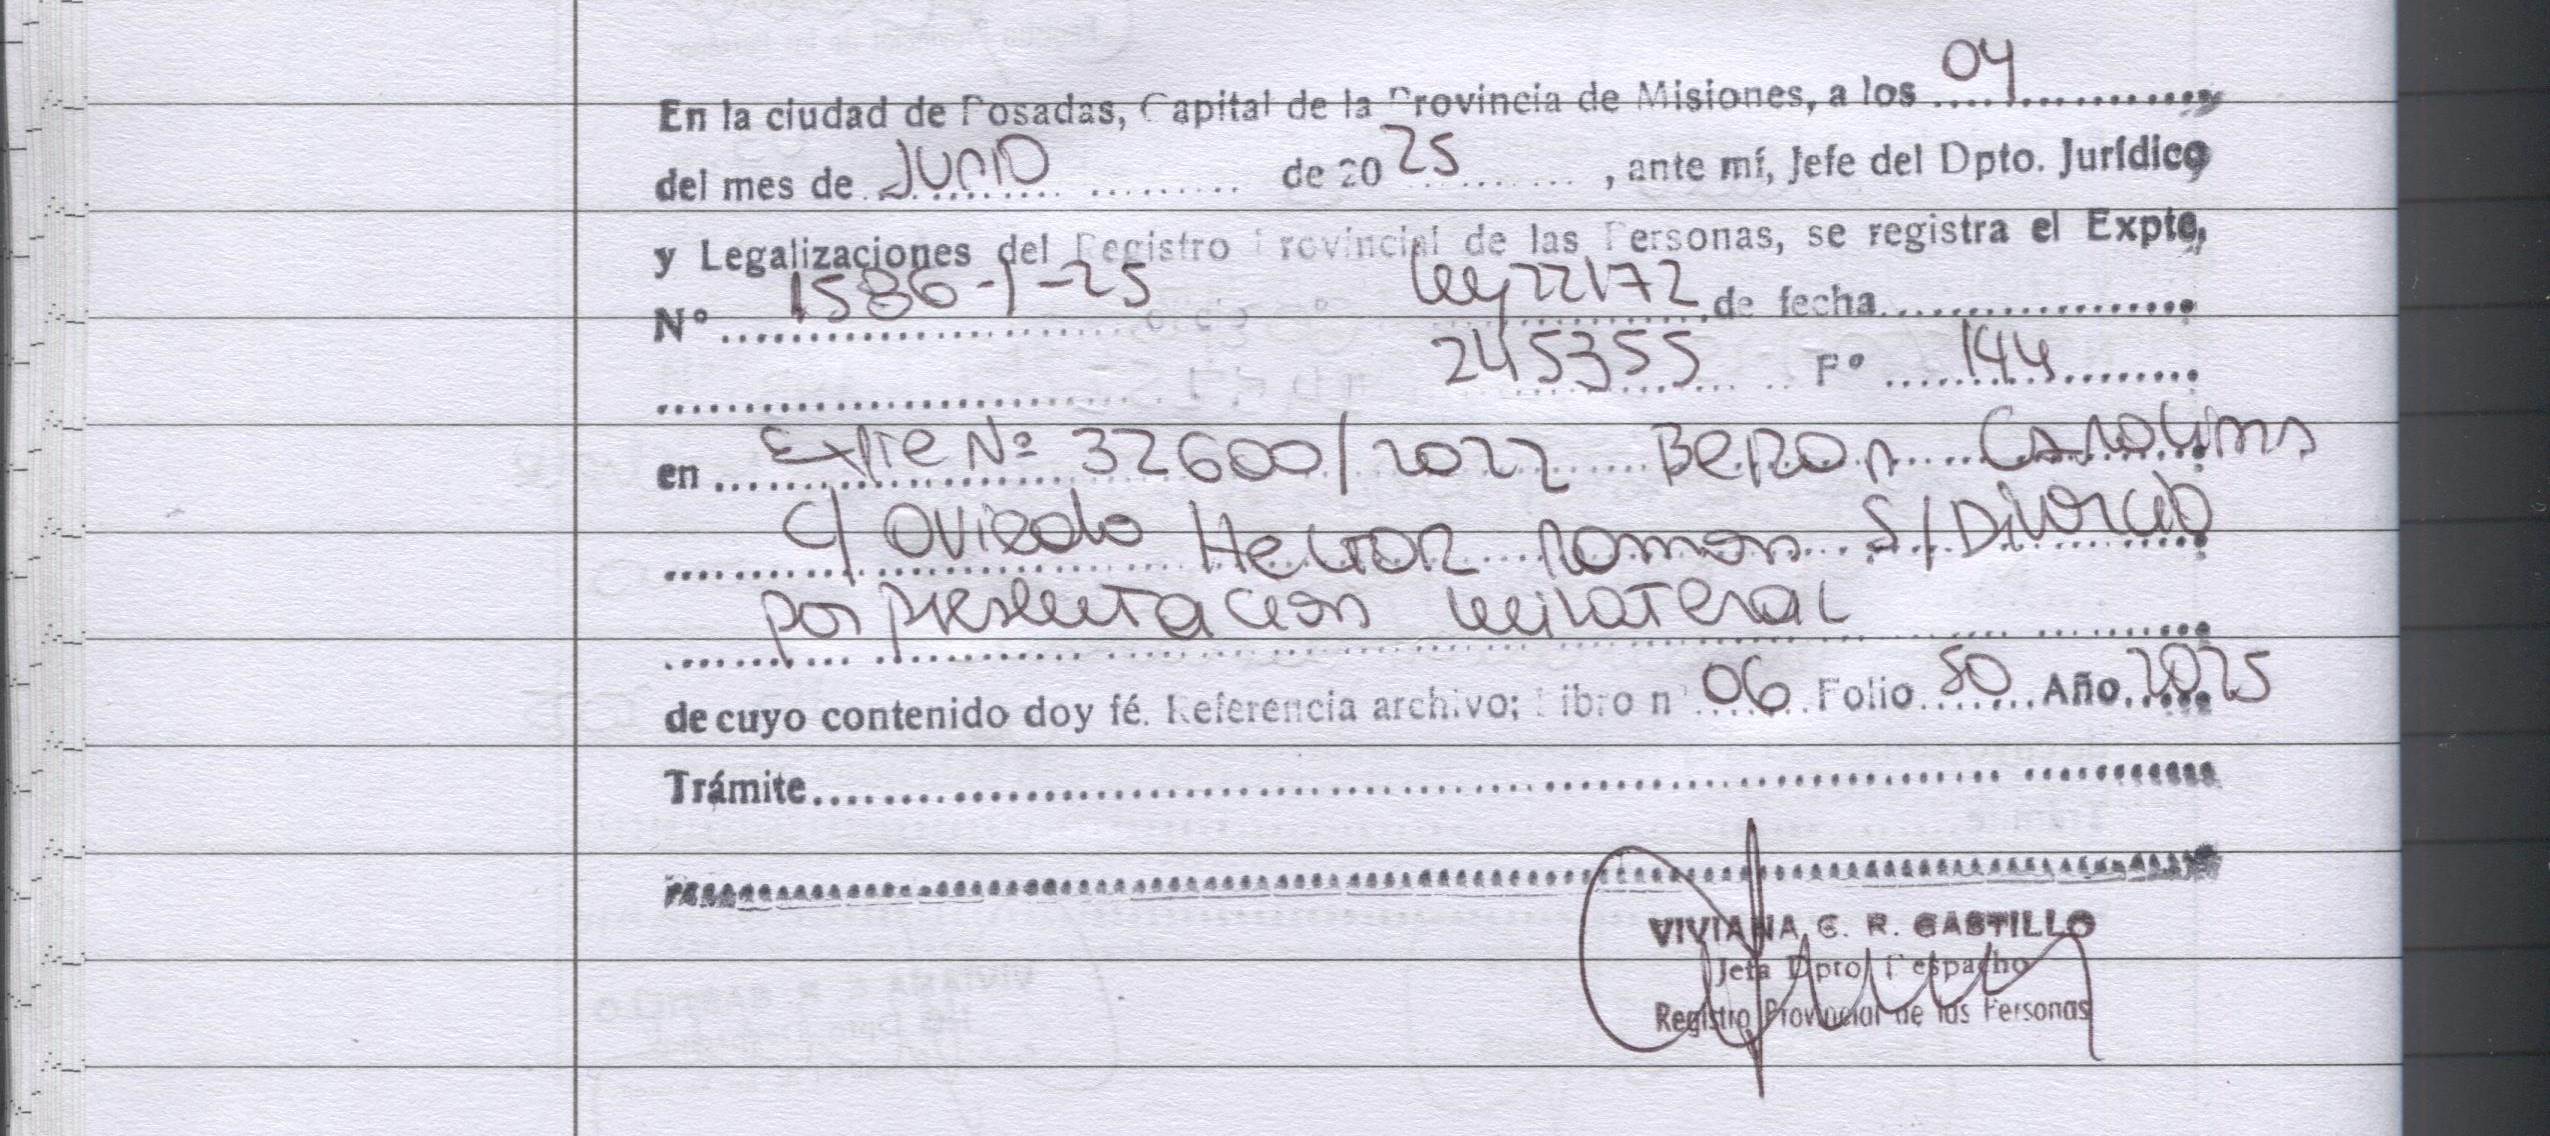 En la ciudad de Posadas, Capital de la Provincia de Misiones, a los 04
del mes de Junio de 2025, ante mí, Jefe del Dpto. Jurídico
y Legalizaciones del Registro Provincial de las Personas, se registra el Expte,
Nº 1586-1-25 Ley 22172 de fecha
245355 Fº 144
en Expte Nº 32600/2022 Beron Carolina
C/ Oviedo Hector Ramon S/ Divorcio
por presentacion unilateral
de cuyo contenido doy fé. Referencia archivo; Libro nº 06 Folio 50 Año 2025
Trámite
VIVIANA C. R. CASTILLO
Jefa Dpto. Despacho
Registro Provincial de las Personas